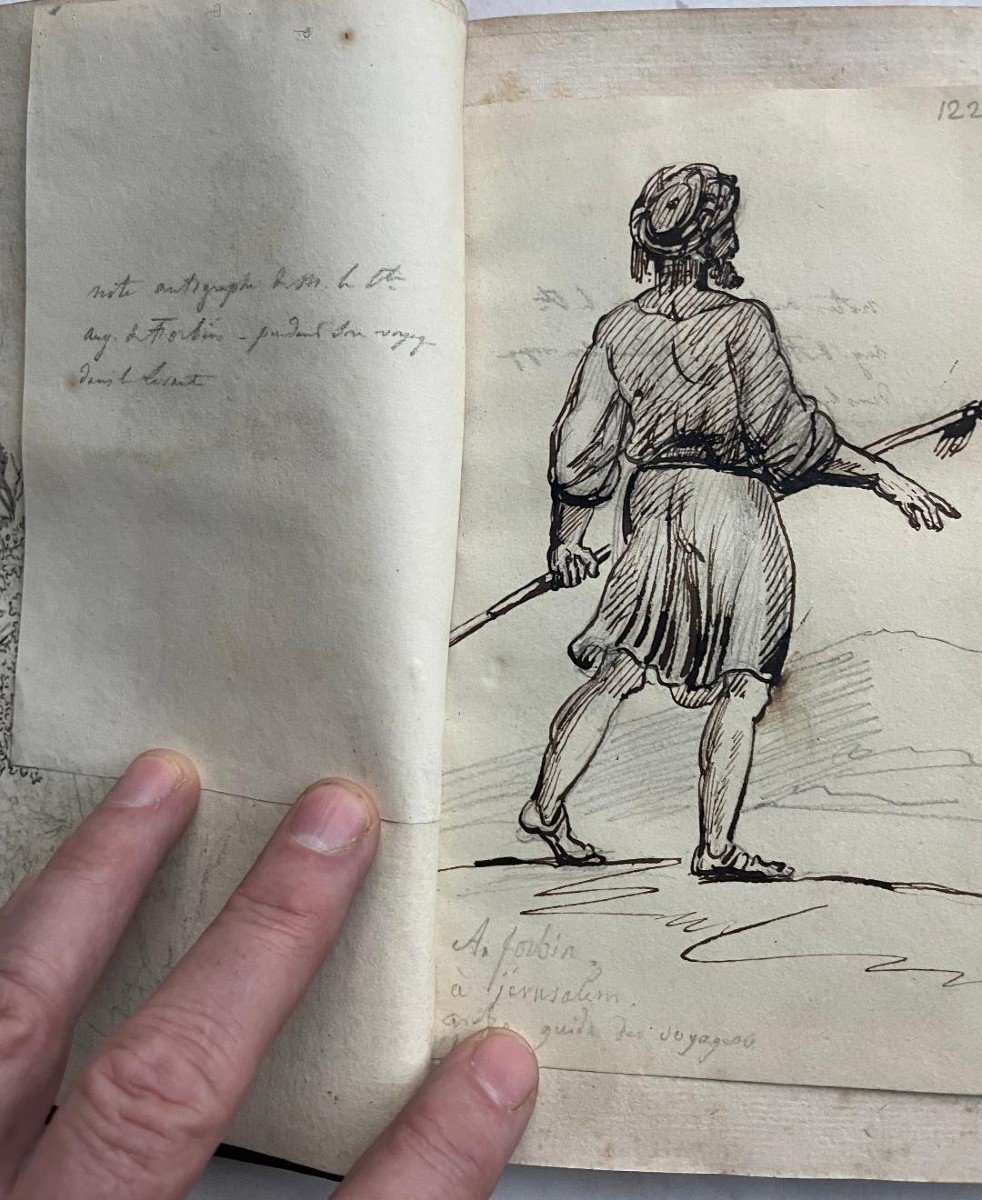 note autographe de M. le Cte
Aug. de Forbin - pendant son voyage
dans le Levant
122
A. forbin.
à jérusalem.
guide des voyageur